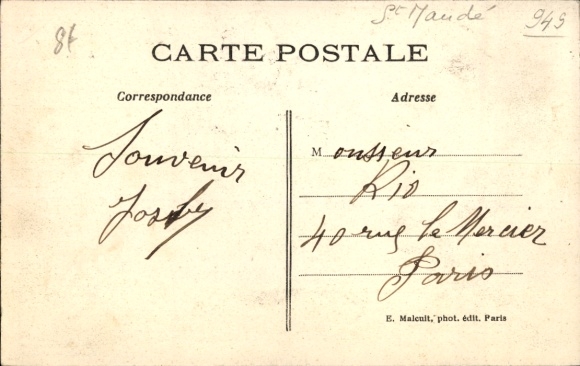 St Mandé
949
8f
CARTE POSTALE
Correspondance
Adresse
Souvenir
Monsieur
Rio
40 rue le Mercier
Paris
E. Malcuit, phot. édit. Paris